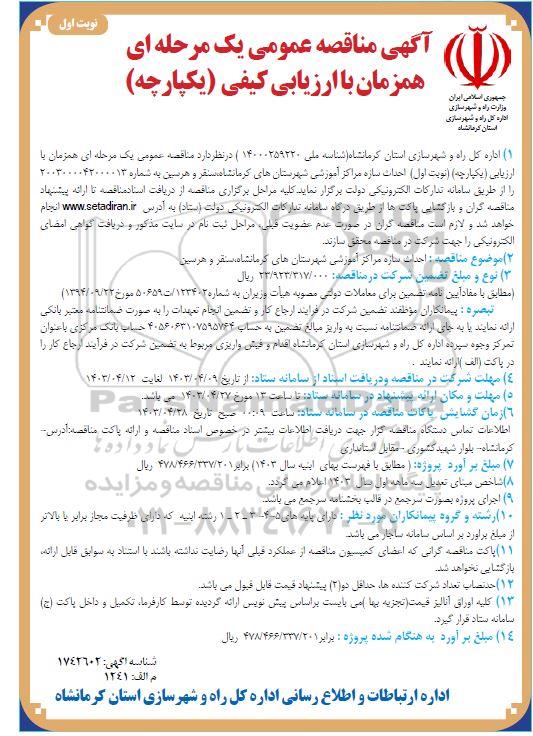 نوبت اول
آگهی مناقصه عمومی یک مرحله ای
همزمان با ارزیابی کیفی (یکپارچه)
جمهوری اسلامی ایران
وزارت راه و شهرسازی
اداره کل راه و شهرسازی
استان کرمانشاه
۱) اداره کل راه و شهرسازی استان کرمانشاه(شناسه ملی ۱۴۰۰۰۲۵۹۲۲۰ ) درنظردارد مناقصه عمومی یک مرحله ای همزمان با
ارزیابی (یکپارچه) (نوبت اول) احداث سازه مراکز آموزشی شهرستان های کرمانشاه،سنقر و هرسین به شماره ۲۰۰۳۰۰۰۰۴۲۰۰۰۰۱۳
را از طریق سامانه تدارکات الکترونیکی دولت برگزار نماید.کلیه مراحل برگزاری مناقصه از دریافت اسنادمناقصه تا ارائه پیشنهاد
مناقصه گران و بازگشایی پاکت ها از طریق درگاه سامانه تدارکات الکترونیکی دولت (ستاد) به آدرس www.setadiran.ir انجام
خواهد شد و لازم است مناقصه گران در صورت عدم عضویت قبلی، مراحل ثبت نام در سایت مذکور و دریافت گواهی امضای
الکترونیکی را جهت شرکت در مناقصه محقق سازند.
۲)موضوع مناقصه : احداث سازه مراکز آموزشی شهرستان های کرمانشاه،سنقر و هرسین
۳) نوع و مبلغ تضمین شرکت درمناقصه: ۲۳/۹۲۳/۳۱۷/۰۰۰ ریال
(مطابق با مفادآیین نامه تضمین برای معاملات دولتی مصوبه هیأت وزیران به شماره۱۲۳۴۰۲/ت۵۰۶۵۹ مورخ۱۳۹۴/۰۹/۲۲)
تبصره : پیمانکاران مؤظفند تضمین شرکت در فرآیند ارجاع کار و تضمین انجام تعهدات را به صورت ضمانتنامه معتبر بانکی
ارائه نمایند یا به جای ارائه ضمانتنامه نسبت به واریز مبالغ تضمین به حساب ۴۰۵۶۰۶۳۱۰۷۵۹۵۷۶۴ حساب بانک مرکزی باعنوان
تمرکز وجوه سپرده اداره کل راه و شهرسازی استان کرمانشاه اقدام و فیش واریزی مربوط به تضمین شرکت در فرآیند ارجاع کار را
در پاکت (الف )ارائه نمایند .
۴) مهلت شرکت در مناقصه ودریافت اسناد از سامانه ستاد: از تاریخ ۱۴۰۳/۰۴/۰۹ لغایت ۱۴۰۳/۰۴/۱۲
۵) مهلت و مکان ارائه پیشنهاد در سامانه ستاد: تا ساعت ۱۳ مورخ ۱۴۰۳/۰۴/۲۷ می باشد.
۶)زمان گشایش پاکات مناقصه در سامانه ستاد: ساعت ۰۰:۰۹ صبح تاریخ ۱۴۰۳/۰۴/۲۸
اطلاعات تماس دستگاه مناقصه گزار جهت دریافت اطلاعات بیشتر در خصوص اسناد مناقصه و ارائه پاکت مناقصه:آدرس-
کرمانشاه- بلوار شهیدکشوری -مقابل استانداری
۷) مبلغ بر آورد پروژه: ( مطابق با فهرست بهای ابنیه سال ۱۴۰۳) برابر۴۷۸/۴۶۶/۳۳۷/۲۰۱ ریال
۸)شاخص مبنای تعدیل سه ماهه اول سال ۱۴۰۳ اعلام می گردد.
۹) اجرای پروژه بصورت سرجمع در قالب بخشنامه سرجمع می باشد.
۱۰)رشته و گروه پیمانکاران مورد نظر : دارای پایه های۵-۴-۳-۲-۱ رشته ابنیه که دارای ظرفیت مجاز برابر یا بالاتر
از مبلغ برآورد بر اساس سامانه ساجار می باشد.
۱۱)پاکت مناقصه گرانی که اعضای کمیسیون مناقصه از عملکرد قبلی آنها رضایت نداشته باشند با استناد به سوابق قابل ارائه،
بازگشایی نخواهد شد.
۱۲)حدنصاب تعداد شرکت کننده ها، حداقل دو(۲) پیشنهاد قیمت قابل قبول می باشد.
۱۳) کلیه اوراق آنالیز قیمت(تجزیه بها )می بایست براساس پیش نویس ارائه گردیده توسط کارفرما، تکمیل و داخل پاکت (ج)
سامانه ستاد قرار گیرد.
۱۴) مبلغ بر آورد به هنگام شده پروژه : برابر۴۷۸/۴۶۶/۳۳۷/۲۰۱ ریال
شناسه آگهی: ۱۷۴۲۶۰۲
م الف: ۱۲۴۱
اداره ارتباطات و اطلاع رسانی اداره کل راه و شهرسازی استان کرمانشاه